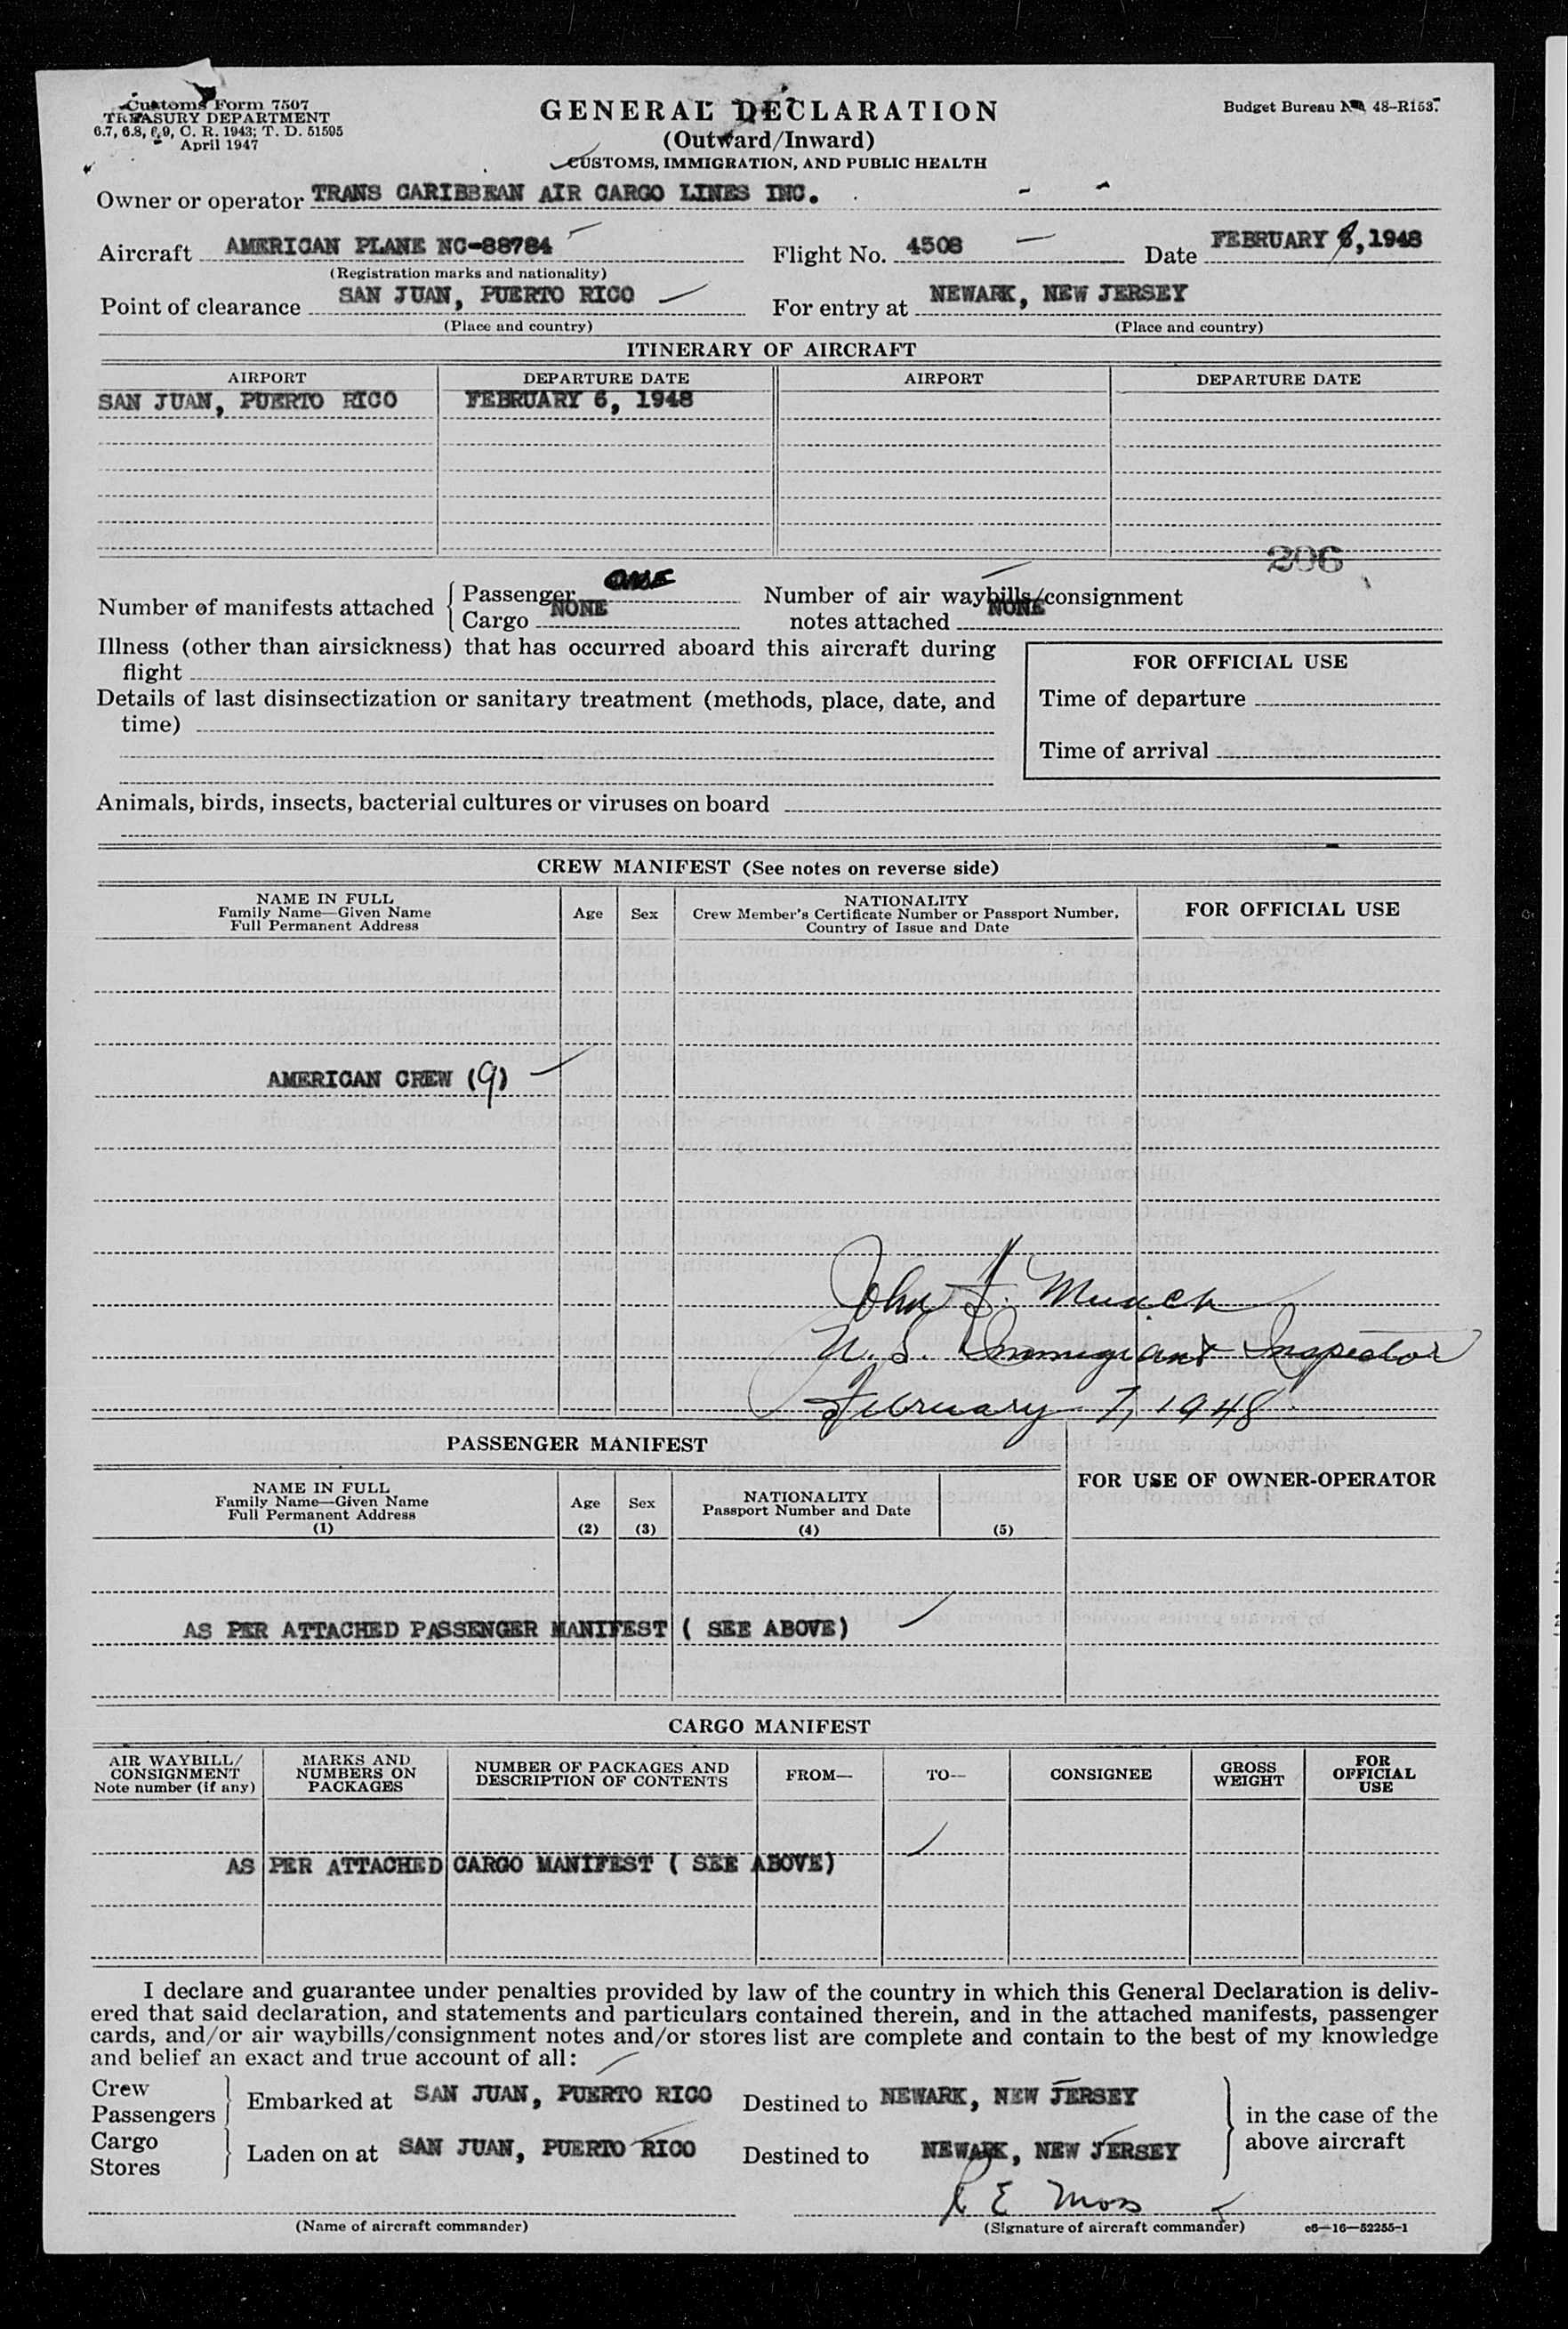 Customs Form 7507
TREASURY DEPARTMENT
6.7, 6.8, 6.9, C. R. 1943; T. D. 51595
April 1947
GENERAL DECLARATION
(Outward/Inward)
CUSTOMS, IMMIGRATION, AND PUBLIC HEALTH
Budget Bureau No. 48-R153.
Owner or operator TRANS CARIBBEAN AIR CARGO LINES INC.
Aircraft AMERICAN PLANE NC-88784 Flight No. 4508 Date FEBRUARY 6, 1948
(Registration marks and nationality)
Point of clearance SAN JUAN, PUERTO RICO For entry at NEWARK, NEW JERSEY
(Place and country) (Place and country)
ITINERARY OF AIRCRAFT
AIRPORT DEPARTURE DATE AIRPORT DEPARTURE DATE
SAN JUAN, PUERTO RICO FEBRUARY 6, 1948
206
Number of manifests attached { Passenger ONE
Cargo NONE
Number of air waybills/consignment
notes attached NONE
Illness (other than airsickness) that has occurred aboard this aircraft during
flight
Details of last disinsectization or sanitary treatment (methods, place, date, and
time)
FOR OFFICIAL USE
Time of departure
Time of arrival
Animals, birds, insects, bacterial cultures or viruses on board
CREW MANIFEST (See notes on reverse side)
NAME IN FULL
Family Name—Given Name
Full Permanent Address
Age
Sex
NATIONALITY
Crew Member's Certificate Number or Passport Number,
Country of Issue and Date
FOR OFFICIAL USE
AMERICAN CREW (9)
John J. Munch
U. S. Immigrant Inspector
February 7, 1948
PASSENGER MANIFEST
NAME IN FULL
Family Name—Given Name
Full Permanent Address
(1)
Age
(2)
Sex
(3)
NATIONALITY
Passport Number and Date
(4)
(5)
FOR USE OF OWNER-OPERATOR
AS PER ATTACHED PASSENGER MANIFEST ( SEE ABOVE)
CARGO MANIFEST
AIR WAYBILL/
CONSIGNMENT
Note number (if any)
MARKS AND
NUMBERS ON
PACKAGES
NUMBER OF PACKAGES AND
DESCRIPTION OF CONTENTS
FROM—
TO—
CONSIGNEE
GROSS
WEIGHT
FOR
OFFICIAL
USE
AS PER ATTACHED CARGO MANIFEST ( SEE ABOVE)
I declare and guarantee under penalties provided by law of the country in which this General Declaration is deliv-
ered that said declaration, and statements and particulars contained therein, and in the attached manifests, passenger
cards, and/or air waybills/consignment notes and/or stores list are complete and contain to the best of my knowledge
and belief an exact and true account of all:
Crew
Passengers } Embarked at SAN JUAN, PUERTO RICO Destined to NEWARK, NEW JERSEY
Cargo
Stores } Laden on at SAN JUAN, PUERTO RICO Destined to NEWARK, NEW JERSEY
} in the case of the
above aircraft
R E Moss
(Name of aircraft commander) (Signature of aircraft commander) c6—16—52255-1